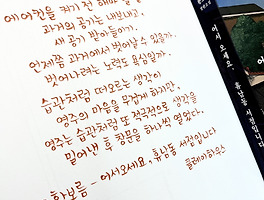 에어컨을 켜기 전 해야 할
과거의 공기는 내보내고,
새 공기 받아들이기.
언제쯤 과거에서 벗어날 수 있을까.
벗어나려는 노력도 욕심일까.
습관처럼 떠오르는 생각이
영주의 마음을 무겁게 하지만,
영주는 습관처럼 또 적극적으로 생각을
밀어낸 후 창문을 하나씩 열었다.
황보름 - 어서오세요, 휴남동 서점입니다
클레이하우스
어서 오세요, 휴남동 서점입니다